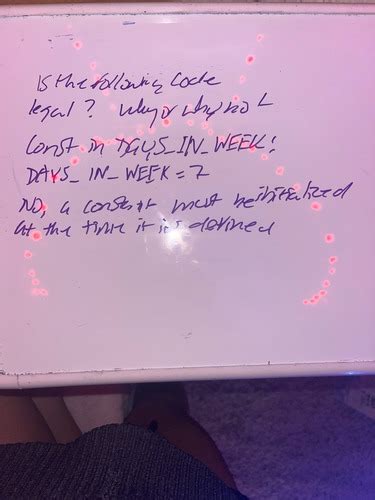 Is the following code
legal? why or why not
Const in DAYS_IN_WEEK;
DAYS_IN_WEEK = 7
No, a constant must be initialized
at the time it is defined